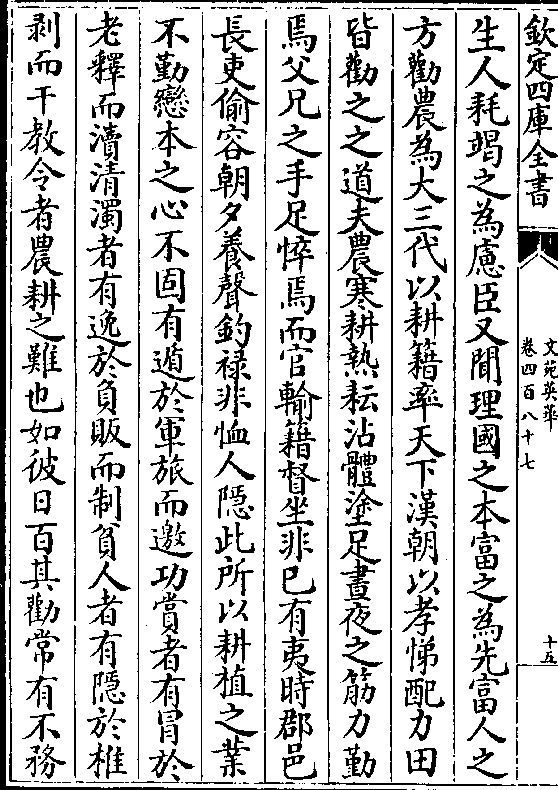 欽定四庫全書
文苑英華
卷四百八十七
十五
生人耗竭之為慮臣又聞理國之本富之為先富人之
方勸農為大三代以耕籍率天下漢朝以孝悌配力田
皆勸之之道夫農寒耕熱耘沾體塗足晝夜之筋力勤
焉父兄之手足悴焉而官輸籍督坐非已有夷時郡邑
長吏偷容朝夕養聲釣祿非恤人隱此所以耕植之業
不勤戀本之心不固有遁於軍旅而邀功賞者有冒於
老釋而瀆清濁者有逸於負販而制貧人者有隱於椎
剥而干教令者農耕之難也如彼日百其勸常有不務